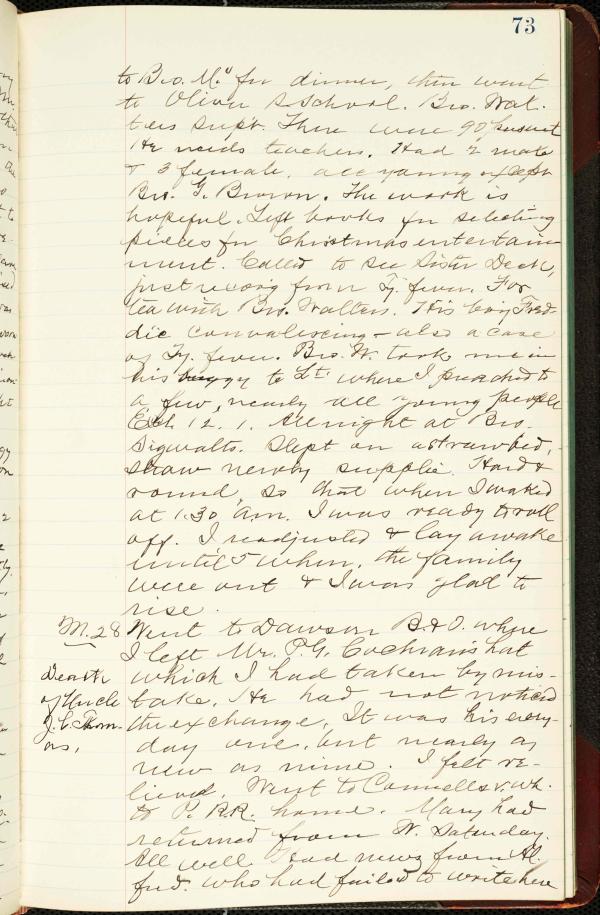 73
to Bro. M.'s for dinner, then went
to Oliver S School. Bro. Wal-
ters supt. There were 90 present
He needs teachers. Had 2 male
& 3 female, all young except
Bro. G. Brown. The work is
hopeful. Left books for selecting
pieces for Christmas entertain-
ment. Called to see Sister Deck,
just recovg from Ty. fever. For
tea with Bro. Walters. His boy Fred-
die convalescing - also a case
of Ty. fever. Bro. W. took me in
his buggy to Lt. where I preached to
a few, nearly all young people
Eccl 12. 1. All night at Bro.
Sigwalts. Slept on a straw bed,
straw newly supplied. Hard &
round, so that when I waked
at 1.30 am. I was ready to roll
off. I readjusted & lay awake
until 5 when, the family
were out & I was glad to
rise.
M. 28 Went to Dawson B.& O. where
I left Mr. P.G. Cochran's hat
Death
of Uncle
J. C. Thom-
as,
which I had taken by mis-
take. He had not noticed
the exchange. It was his every-
day one, but nearly as
new as mine. I felt re-
lieved. Went to Connellsv. wh.
to P. R.R. home. Mary had
returned from W. Saturday.
All well. Had news from
who had failed to write here